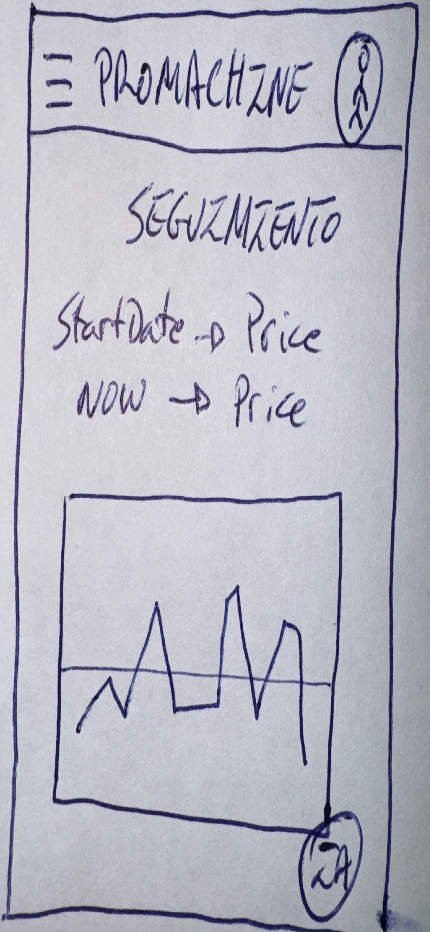 PROMACHINE
SEGUIMIENTO
StartDate → Price
NOW → Price
IA